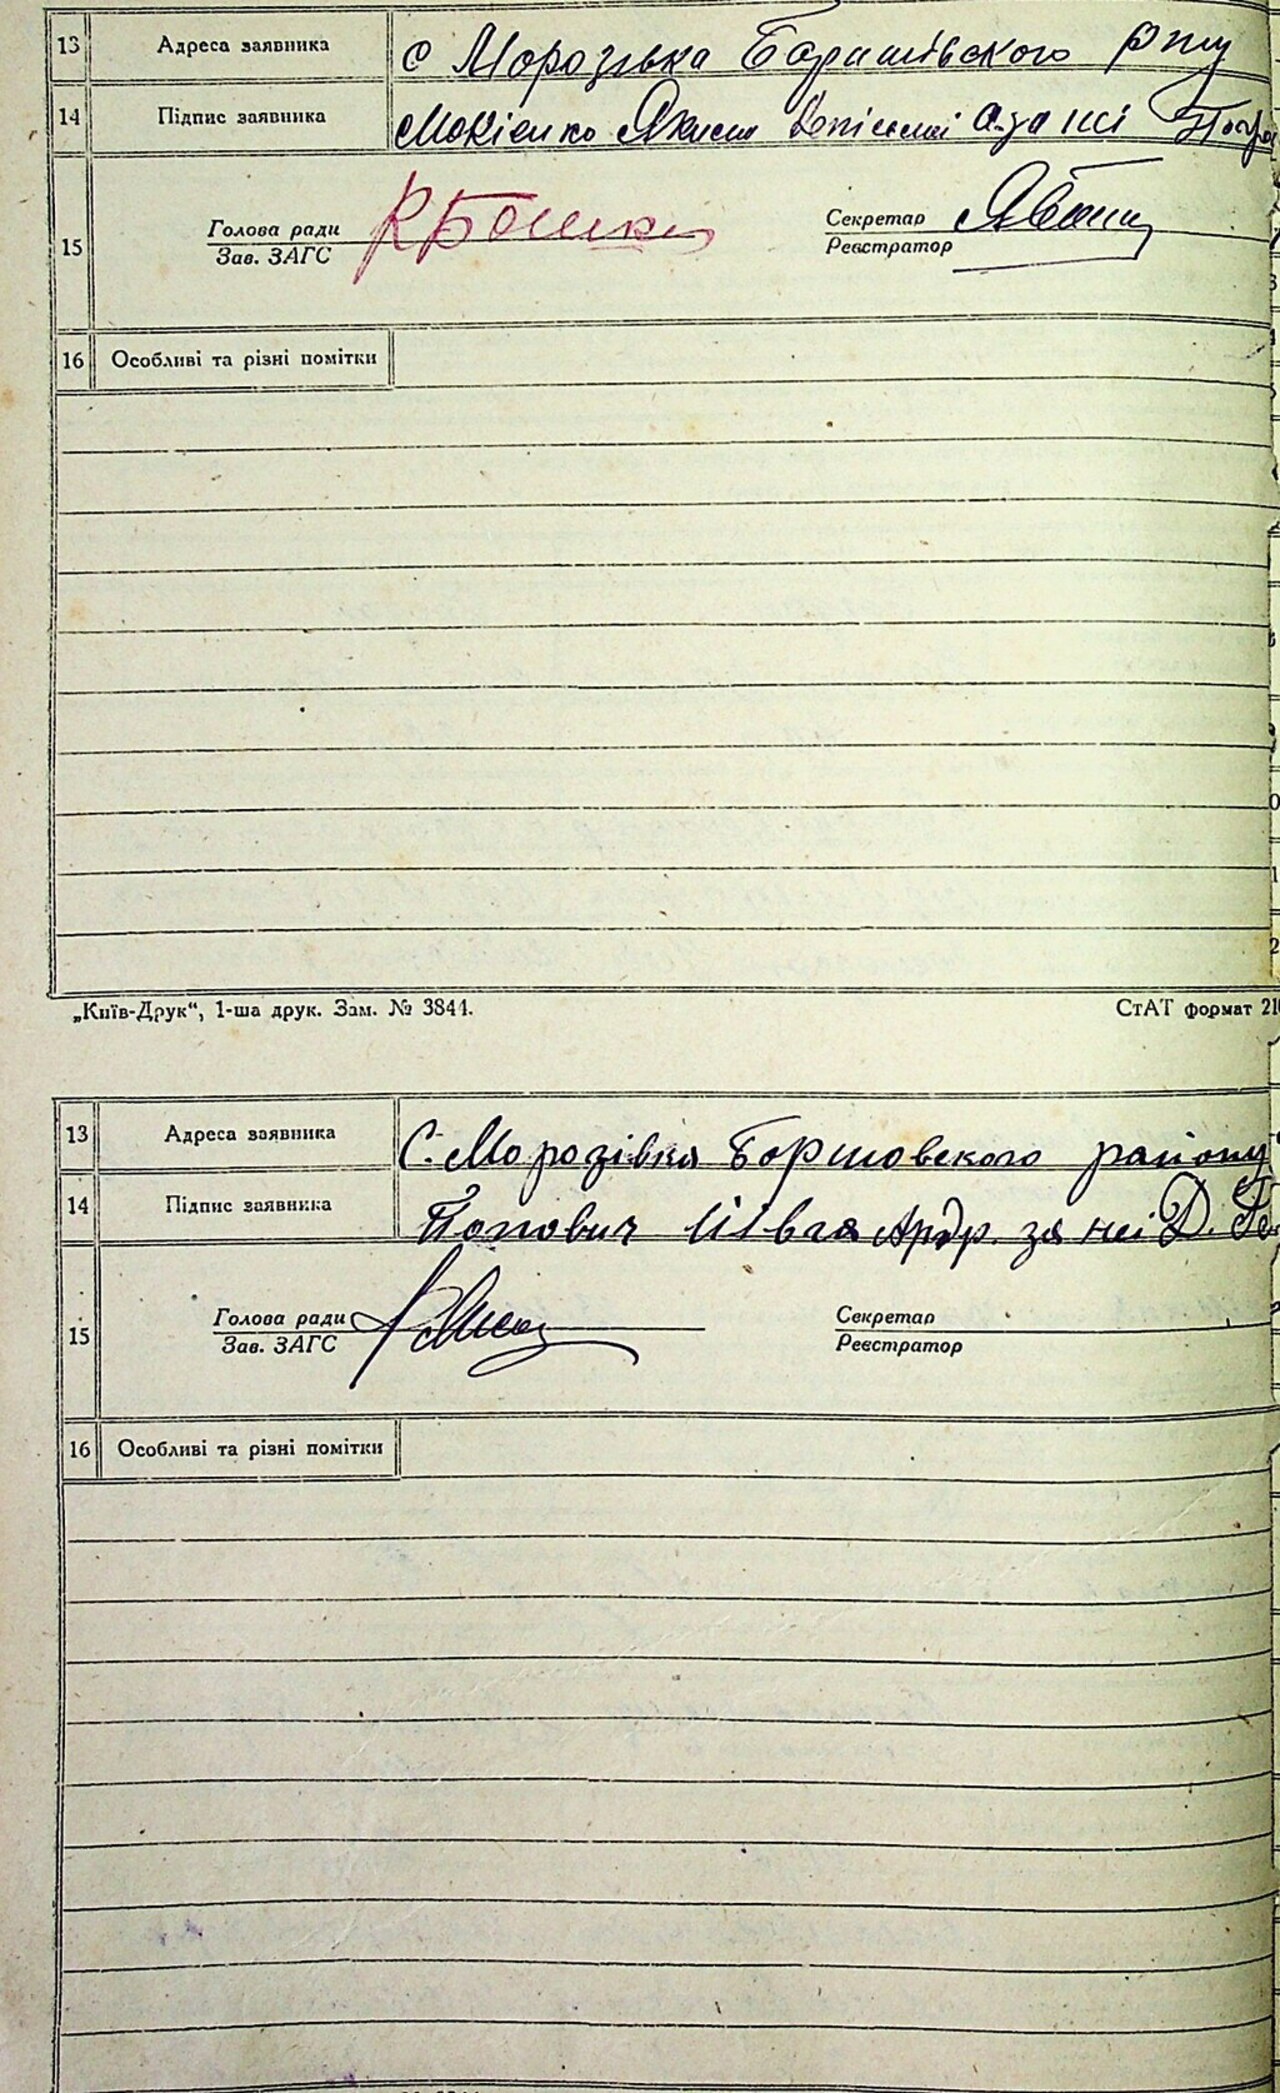 13 Адреса заявника с Морозівка Баришівського р ну
14 Підпис заявника Мокієнко а за неї
15 Голова ради Секретар
Зав. ЗАГС Реєстратор
16 Особливі та різні помітки
„Київ-Друк“, 1-ша друк. Зам. № 3844. СтАТ формат
13 Адреса заявника С. Морозівка Боршовского району
14 Підпис заявника Попович Івга за неї Д.
15 Голова ради Секретар
Зав. ЗАГС Реєстратор
16 Особливі та різні помітки